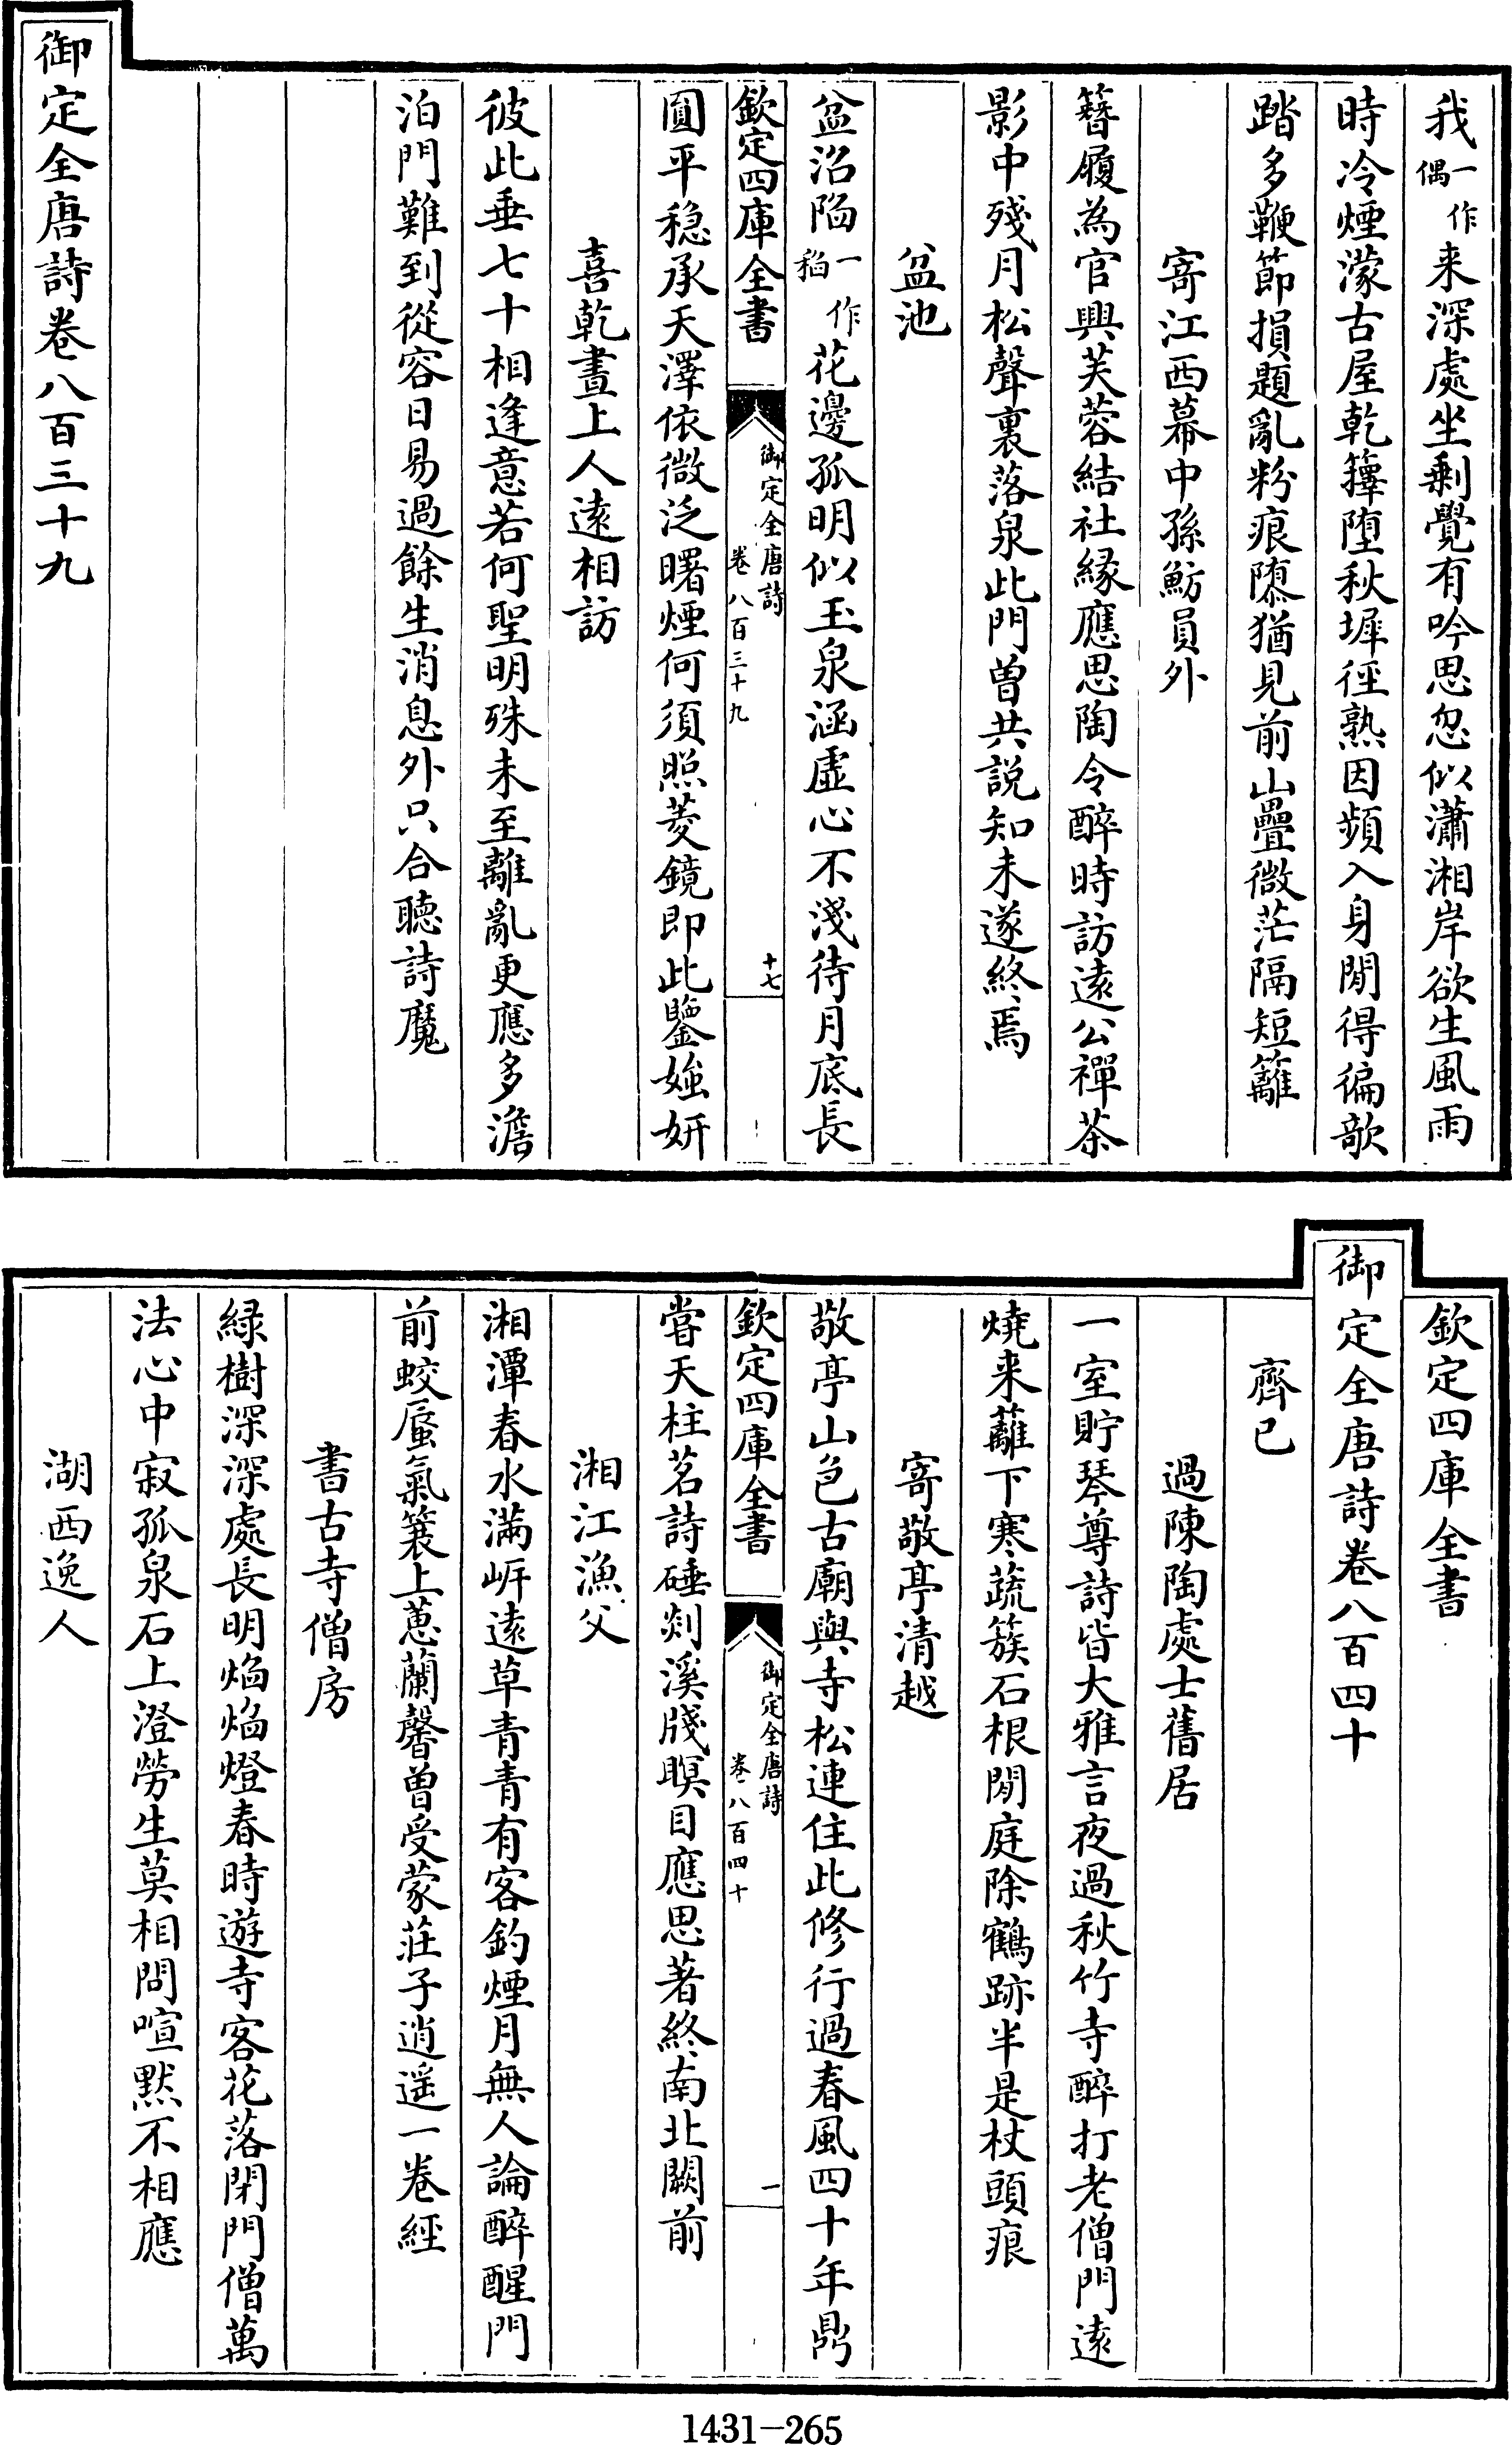 我一作偶来深處坐剩覺有吟思忽似瀟湘岸欲生風雨
時冷煙濛古屋乾籜堕秋墀徑熟因頻入身閒得徧欹
踏多鞭節損題亂粉痕隳猶見前山疊微茫隔短籬
寄江西幕中孫魴員外
簪履為官興芙蓉結社緣應思陶令醉時訪遠公禪茶
影中殘月松聲裏落泉此門曽共説知未遂終焉
盆池
盆沼陷一作稻花邊孤明似玉泉涵虛心不淺待月底長
欽定四庫全書
御定全唐詩
卷八百三十九
十七
圓平穏承天澤依微泛曙煙何須照菱鏡即此鑒媸妍
喜乾晝上人遠相訪
彼此垂七十相逢意若何聖明殊未至離亂更應多澹
泊門難到從容日易過餘生消息外只合聽詩魔
御定全唐詩卷八百三十九
欽定四庫全書
御定全唐詩卷八百四十
齊己
過陳陶處士舊居
一室貯琴尊詩皆大雅言夜過秋竹寺醉打老僧門遠
燒来蘺下寒蔬簇石根閒庭除鶴跡半是杖頭痕
寄敬亭清越
敬亭山色古廟與寺松連住此修行過春風四十年鼎
欽定四庫全書
御定全唐詩
卷八百四十
一
嘗天柱茗詩硾剡溪牋瞑目應思著終南北闕前
湘江漁父
湘潭春水滿岍遠草青青有客釣煙月無人論醉醒門
前蛟蜃氣蓑上蕙蘭馨曽受蒙莊子逍遥一卷經
書古寺僧房
緑樹深深處長明焔焔燈春時遊寺客花落閉門僧萬
法心中寂孤泉石上澄勞生莫相問喧黙不相應
湖西逸人
1431-265